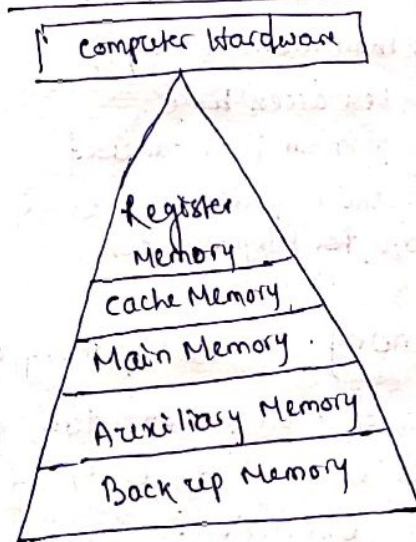 Computer Hardware
Register
Memory
Cache Memory
Main Memory
Auxiliary Memory
Back up Memory